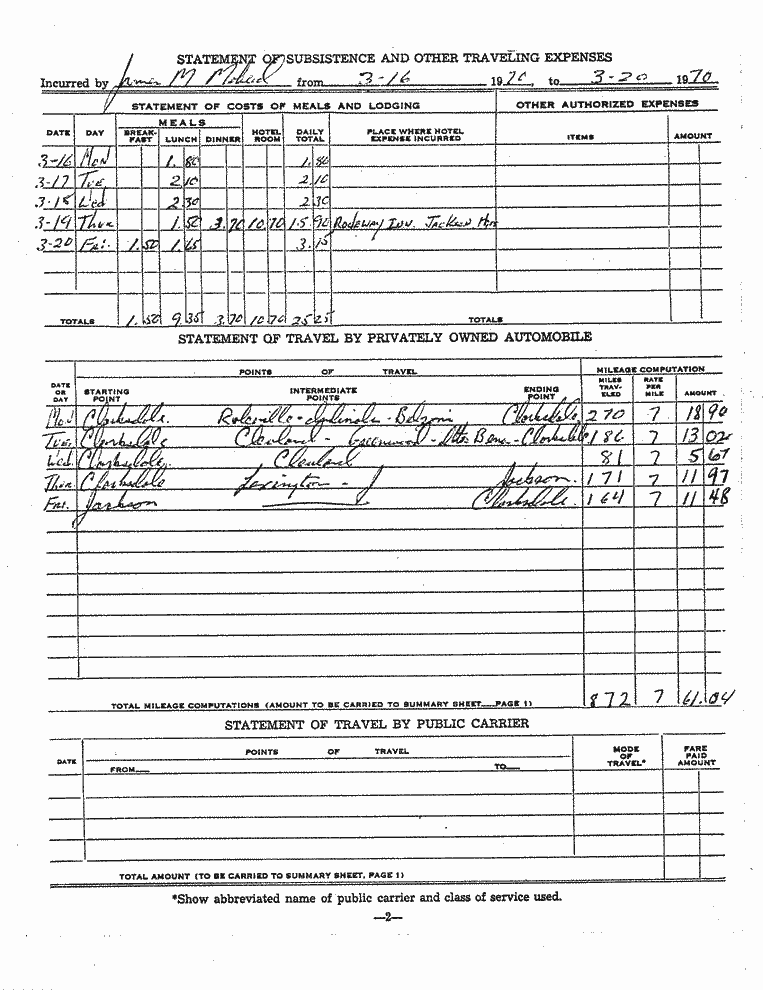 STATEMENT OF SUBSISTENCE AND OTHER TRAVELING EXPENSES
Incurred by James M from 3-16 1970, to 3-20 1970
STATEMENT OF COSTS OF MEALS AND LODGING OTHER AUTHORIZED EXPENSES
DATE DAY MEALS BREAK-FAST LUNCH DINNER HOTEL ROOM DAILY TOTAL PLACE WHERE HOTEL EXPENSE INCURRED ITEMS AMOUNT
3-16 Mon 1.80 1.80
3-17 Tue 2 10 2 10
3-18 Wed 2 30 2 30
3-19 Thur 1.50 3.70 10.70 15.90 Rodeway Inn. Jackson
3-20 Fri. 1.50 1.65 3.15
TOTALS 1.50 9 35 3.70 10 70 25 25 TOTALS
STATEMENT OF TRAVEL BY PRIVATELY OWNED AUTOMOBILE
DATE OR DAY POINTS OF TRAVEL MILEAGE COMPUTATION
STARTING POINT INTERMEDIATE POINTS ENDING POINT MILES TRAV-ELED RATE PER MILE AMOUNT
Mon Clarksdale. Ruleville - Indianola - Belzoni Clarksdale 270 7 18 90
Tues Clarksdale Cleveland - Greenwood - Itta Bena - Clarksdale 186 7 13 02
Wed. Clarksdale. Cleveland 81 7 5 67
Thur Clarksdale Lexington - Jackson. 171 7 11 97
Fri. Jackson Clarksdale. 164 7 11 48
TOTAL MILEAGE COMPUTATIONS (AMOUNT TO BE CARRIED TO SUMMARY SHEET PAGE 1) 872 7 61.04
STATEMENT OF TRAVEL BY PUBLIC CARRIER
DATE POINTS OF TRAVEL MODE OF TRAVEL* FARE PAID AMOUNT
FROM TO
TOTAL AMOUNT (TO BE CARRIED TO SUMMARY SHEET, PAGE 1)
*Show abbreviated name of public carrier and class of service used.
—2—